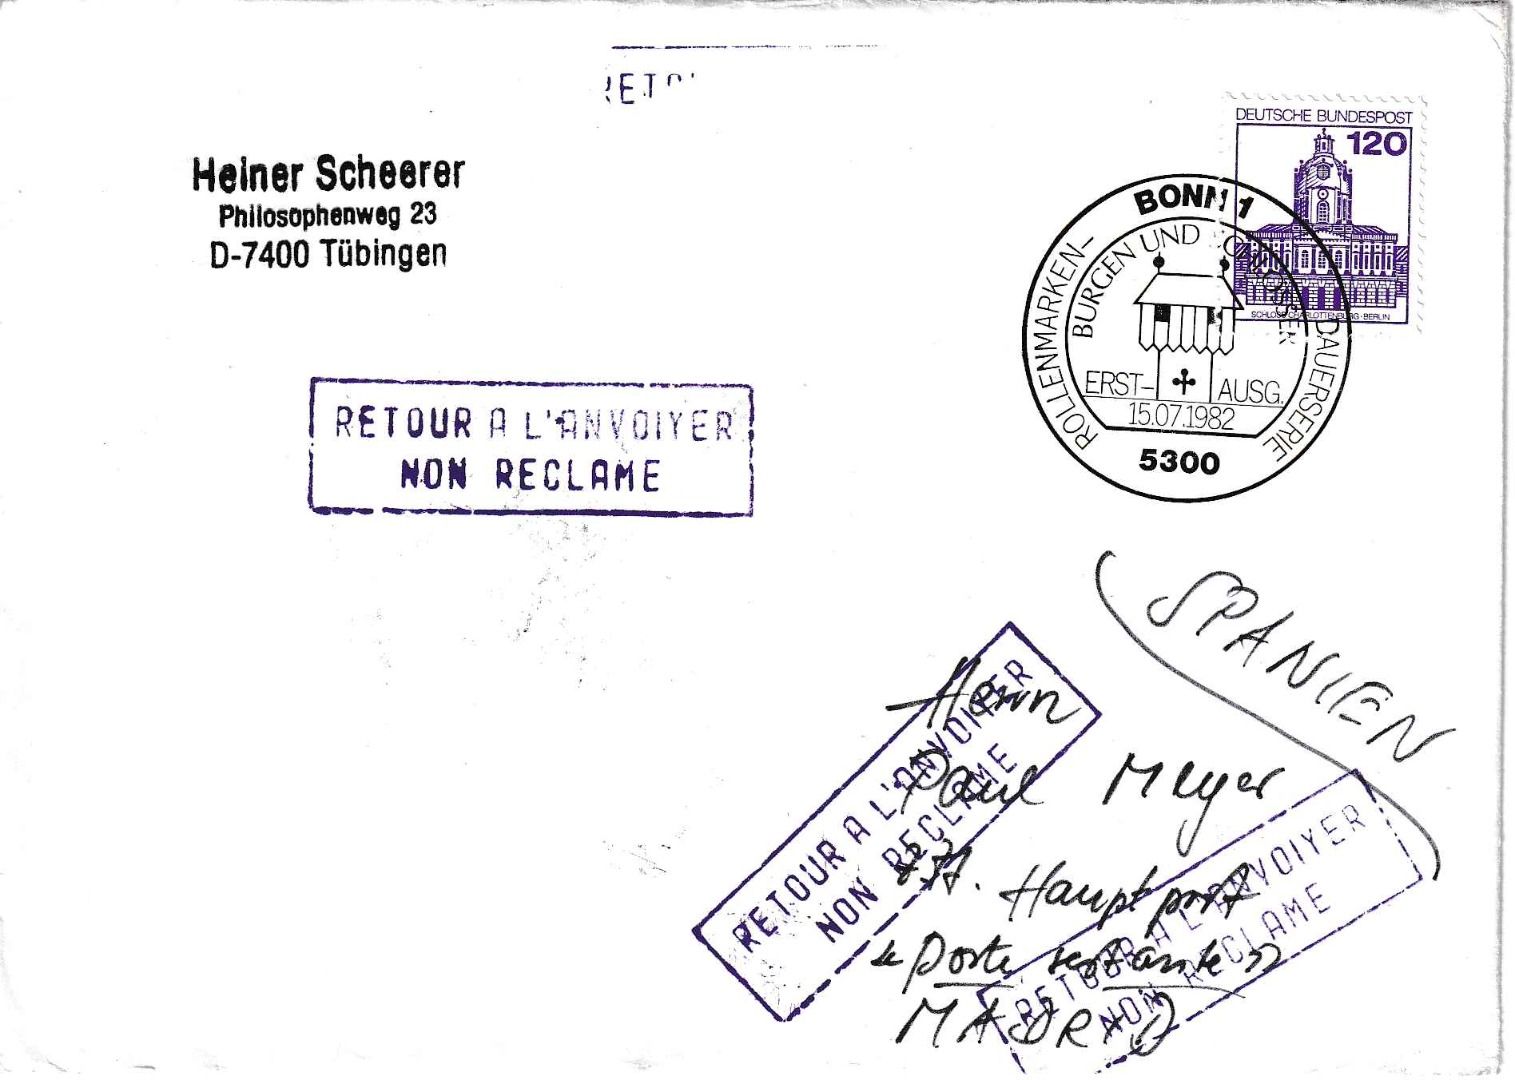 Heiner Scheerer
Philosophenweg 23
D-7400 Tübingen
DEUTSCHE BUNDESPOST
120
SCHLOSS CHARLOTTENBURG · BERLIN
BONN 1
ROLLENMARKEN-DAUERSERIE
BURGEN UND SCHLÖSSER
ERST-AUSG.
15.07.1982
5300
RETOUR A L'ANVOIYER
NON RECLAME
SPANIEN
Herrn
Paul Meyer
Hauptpost
"Poste restante"
MADRID
RETOUR A L'ANVOIYER
NON RECLAME
RETOUR A L'ANVOIYER
NON RECLAME